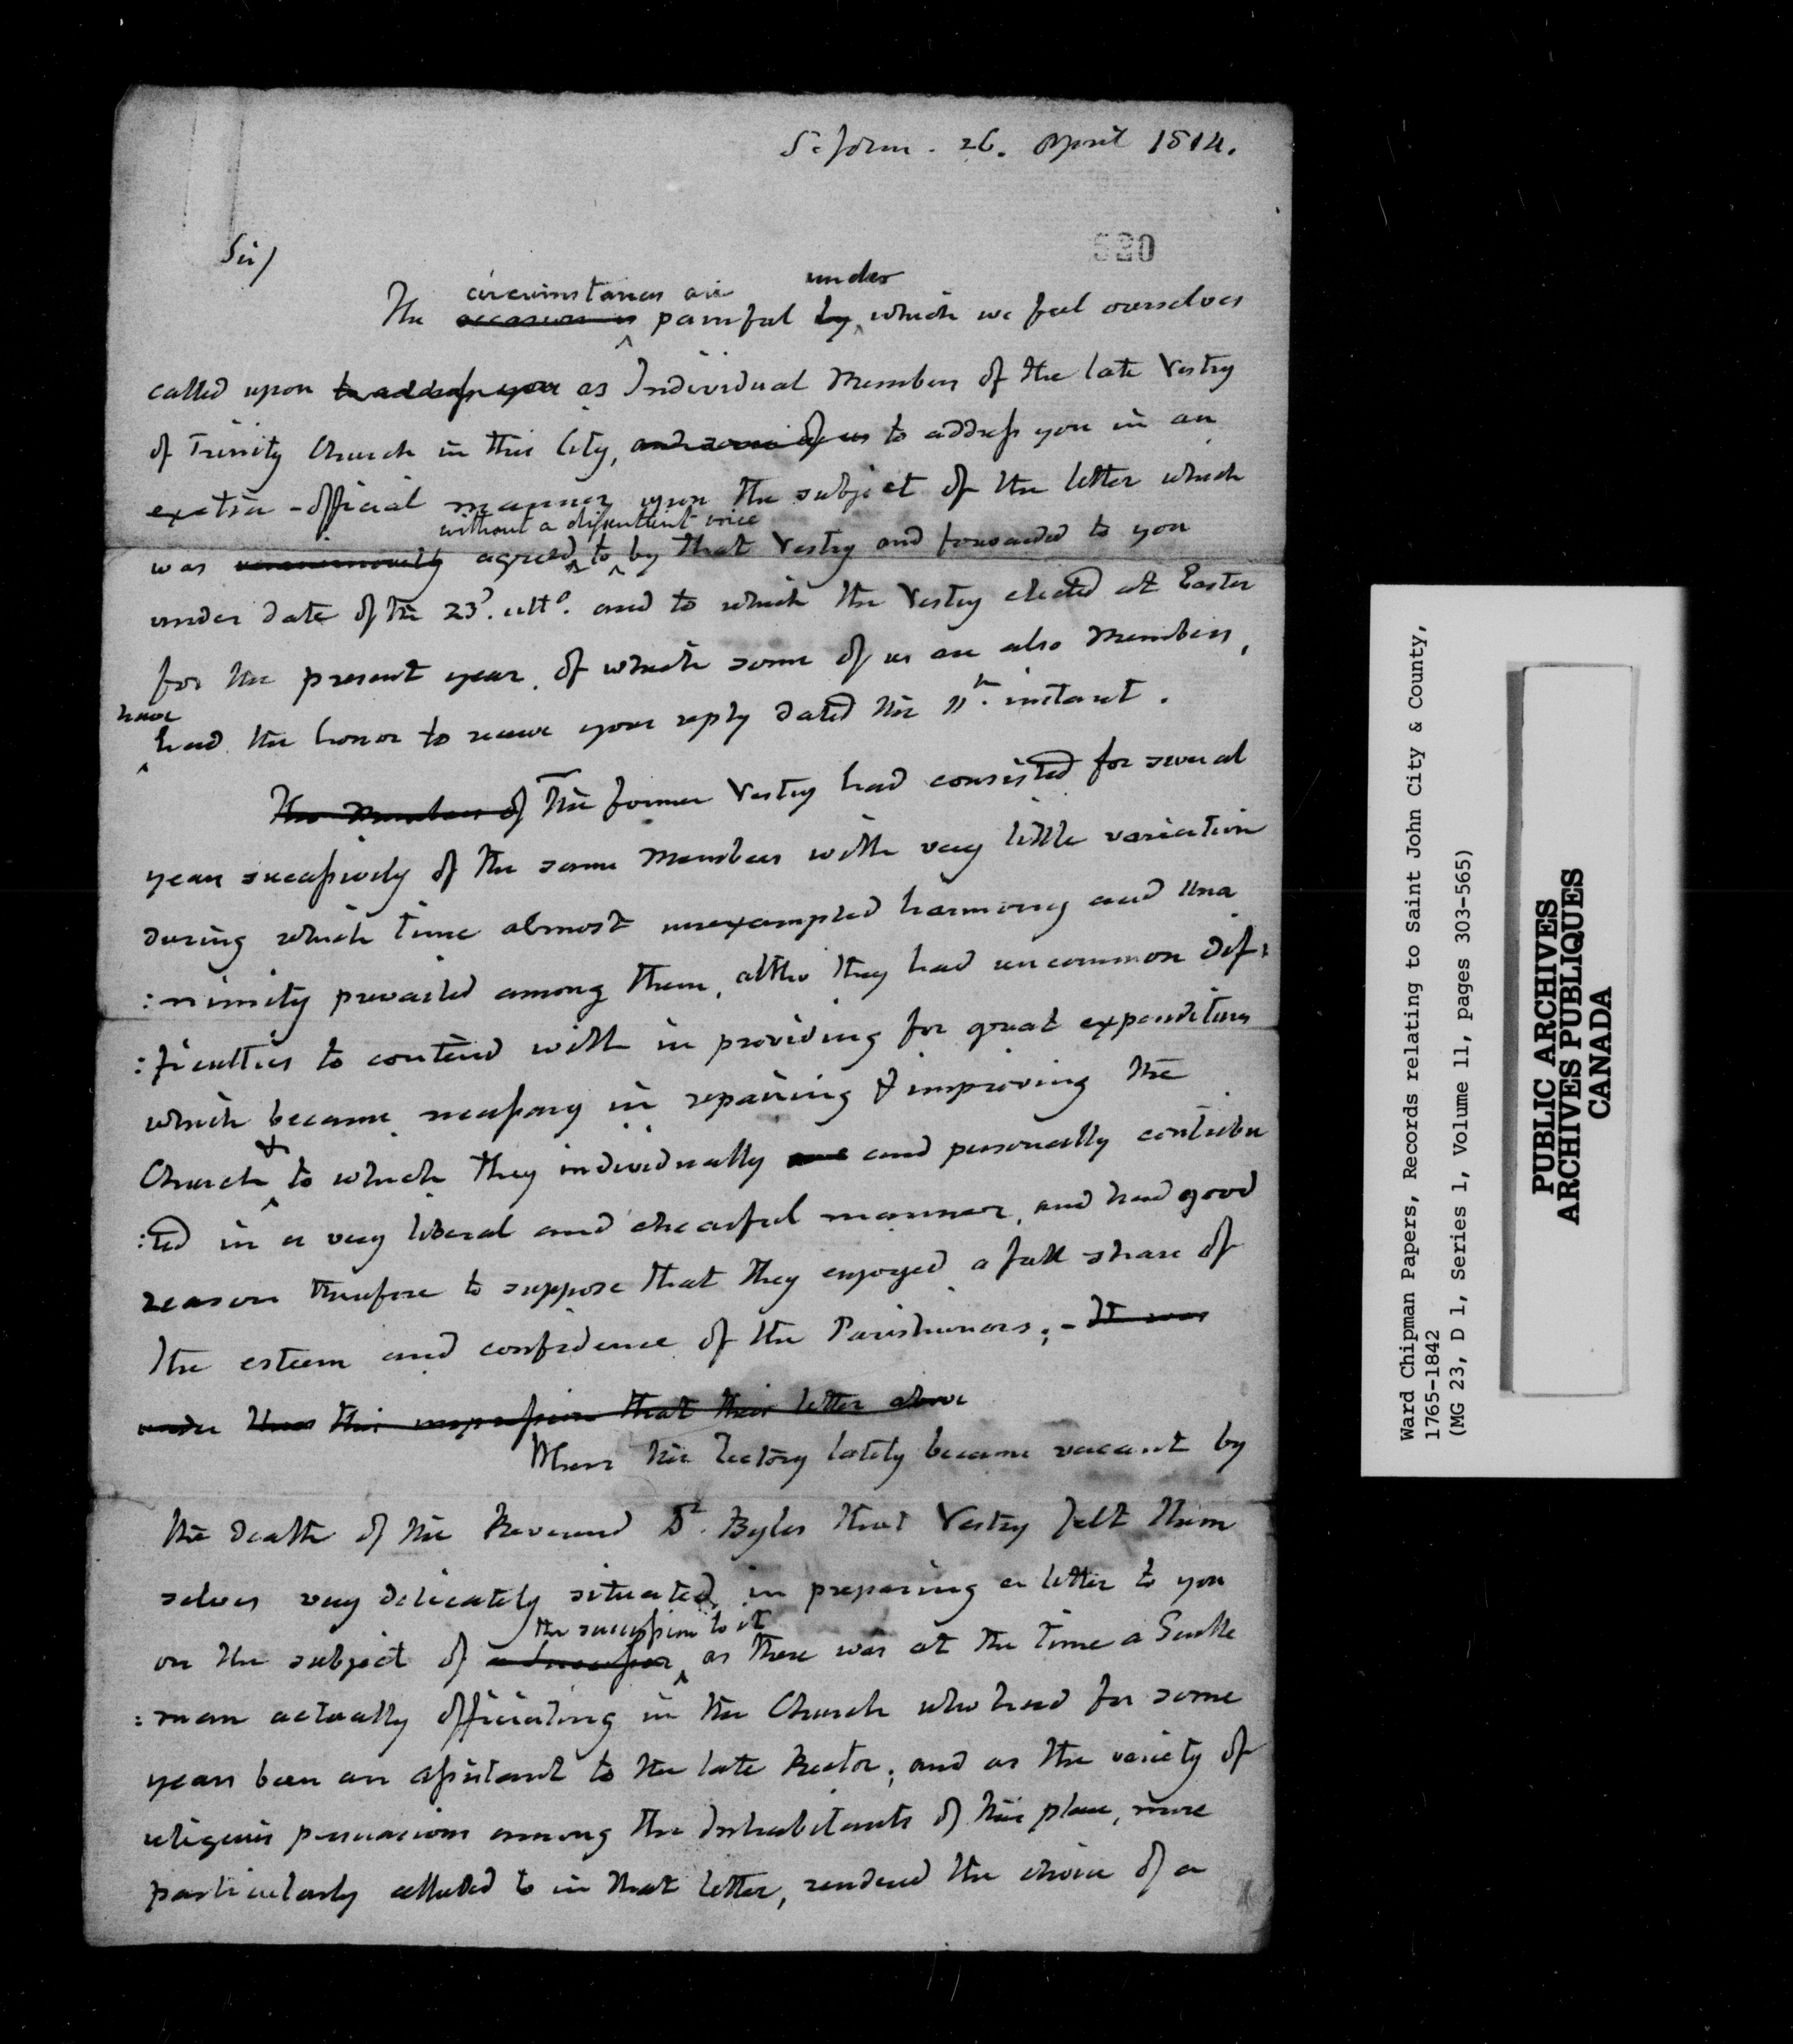 St John. 26. April 1814.
520
Sir/
circumstances are under
The occasion is painful by which we feel ourselves
called upon to address you as Individual Members of the late Vestry
of Trinity Church in this City, and some of us to address you in an
extra-official manner upon the subject of the letter which
without a dissentient voice
was unanimously agreed to by that Vestry and forwarded to you
under date of the 23d. ulto. and to which the Vestry elected at Easter
for the present year, of which some of us are also Members,
have
had the honor to receive your reply dated the 11th. instant.
The Members of The former Vestry had consisted for several
years successively of the same Members with very little variation
during which time almost unexampled harmony and Una
:nimity prevailed among them, altho they had uncommon dif:
:ficulties to contend with in providing for great expenditures
which became necessary in repairing & improving the
&
Church to which they individually and personally contribu
:ted in a very liberal and chearful manner, and had good
reason therefore to suppose that they enjoyed a full share of
the esteem and confidence of the Parishioners; - It was
under this impression that their letter above
When the Rectory lately became vacant by
the death of the Reverend Dr. Byles that Vestry felt them
selves very delicately situated in preparing a letter to you
the succession to it
on the subject of a successor as there was at the time a Gentle
:man actually officiating in the Church who had for some
years been an assistant to the late Rector; and as the variety of
religious persuasions among the Inhabitants of this place, more
particularly alluded to in that letter, rendered the choice of a
Ward Chipman Papers, Records relating to Saint John City & County,
1765-1842
(MG 23, D 1, Series 1, Volume 11, pages 303-565)
PUBLIC ARCHIVES
ARCHIVES PUBLIQUES
CANADA